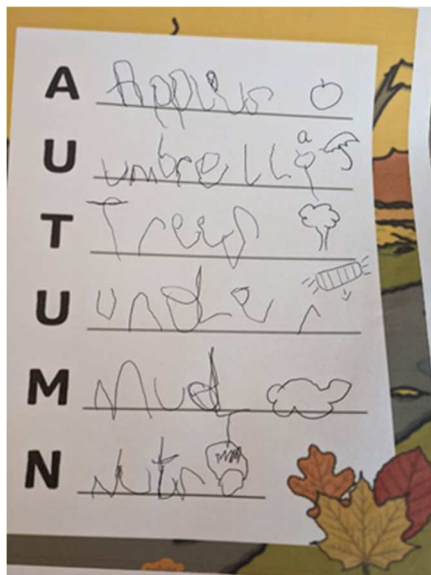 A Apples
U umbrella
T Trees
U under
M Mud
N Nuts